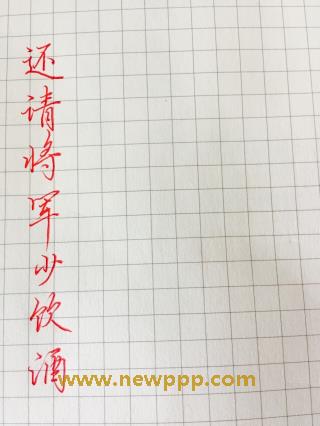 还请将军少饮酒
www.newppp.com